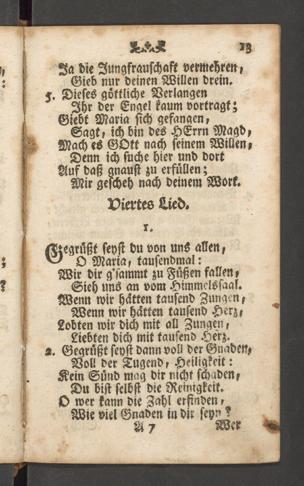 13
Ja die Jungfrauschaft vermehren,
Gieb nur deinen Willen drein.
5. Dieses göttliche Verlangen
Ihr der Engel kaum vortragt;
Giebt Maria sich gefangen,
Sagt, ich bin des HErrn Magd,
Mach es GOtt nach seinem Willen,
Denn ich suche hier und dort
Auf daß gnaust zu erfüllen;
Mir gescheh nach deinem Wort.
Viertes Lied.
1.
Gegrüßt seyst du von uns allen,
O Maria, tausendmal:
Wir dir g'sammt zu Füßen fallen,
Sieh uns an vom Himmelssaal.
Wenn wir hätten tausend Zungen,
Wenn wir hätten tausend Herz,
Lobten wir dich mit all Zungen,
Liebten dich mit tausend Herz.
2. Gegrüßt seyst dann voll der Gnaden,
Voll der Tugend, Heiligkeit:
Kein Sünd mag dir nicht schaden,
Du bist selbst die Reinigkeit.
O wer kann die Zahl erfinden,
Wie viel Gnaden in dir seyn?
A 7 Wer